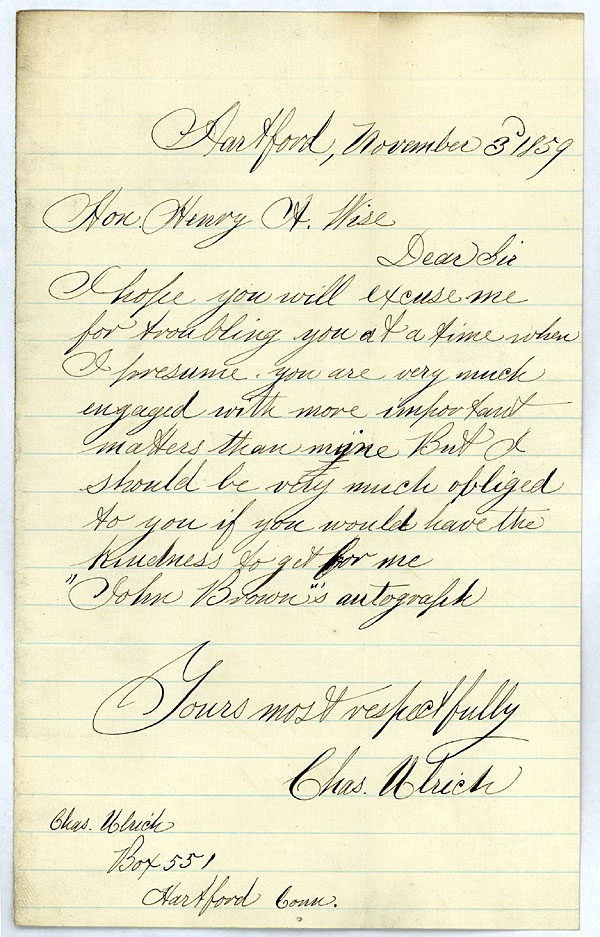 Hartford, November 3d 1859
Hon. Henry A. Wise
Dear Sir
I hope you will excuse me
for troubling you at a time when
I presume you are very much
engaged with more important
matters than mine But I
should be very much obliged
to you if you would have the
kindness to get for me
"John Brown"'s autograph
Yours most respectfully
Chas. Ulrich
Chas. Ulrich
Box 551
Hartford Conn.